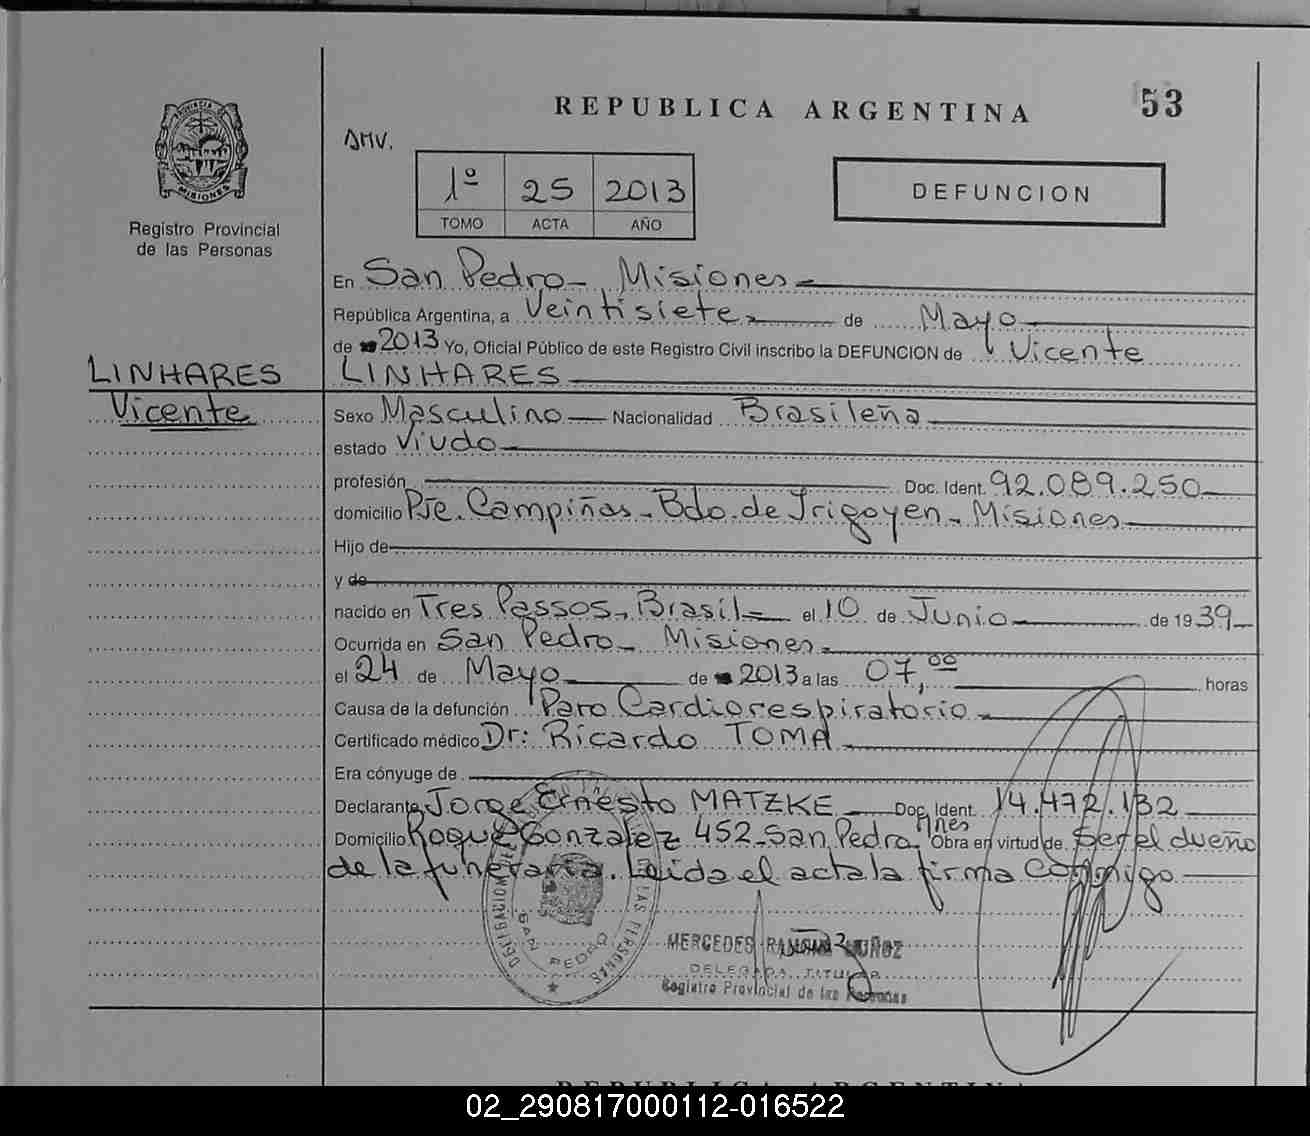 REPUBLICA ARGENTINA
53
DMV.
1º 25 2013
TOMO ACTA AÑO
DEFUNCION
PROVINCIA DE
MISIONES
Registro Provincial
de las Personas
En San Pedro - Misiones
República Argentina, a Veintisiete de Mayo
de 2013 Yo, Oficial Público de este Registro Civil inscribo la DEFUNCION de Vicente
LINHARES
LINHARES
Vicente
Sexo Masculino Nacionalidad Brasileña
estado Viudo
profesión Doc. Ident. 92.089.250
domicilio Pje. Campiñas - Bdo. de Irigoyen - Misiones
Hijo de
y de
nacido en Tres Passos - Brasil el 10 de Junio de 1939
Ocurrida en San Pedro - Misiones
el 24 de Mayo de 2013 a las 07,00 horas
Causa de la defunción Paro Cardiorespiratorio
Certificado médico Dr: Ricardo TOMA
Era cónyuge de
Declarante Jorge Ernesto MATZKE Doc. Ident. 14.472.132
Domicilio Roque Gonzalez 452 - San Pedro, Mnes Obra en virtud de Ser el dueño
de la funeraria. Leida el acta la firma Conmigo
SAN PEDRO
MERCEDES MUÑOZ
DELEGADA TITULAR
Registro Provincial de las Personas
REPUBLICA ARGENTINA
02_290817000112-016522